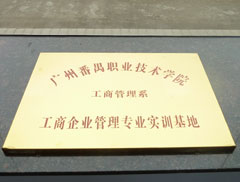 广州番禺职业技术学院
工商管理系
工商企业管理专业实训基地